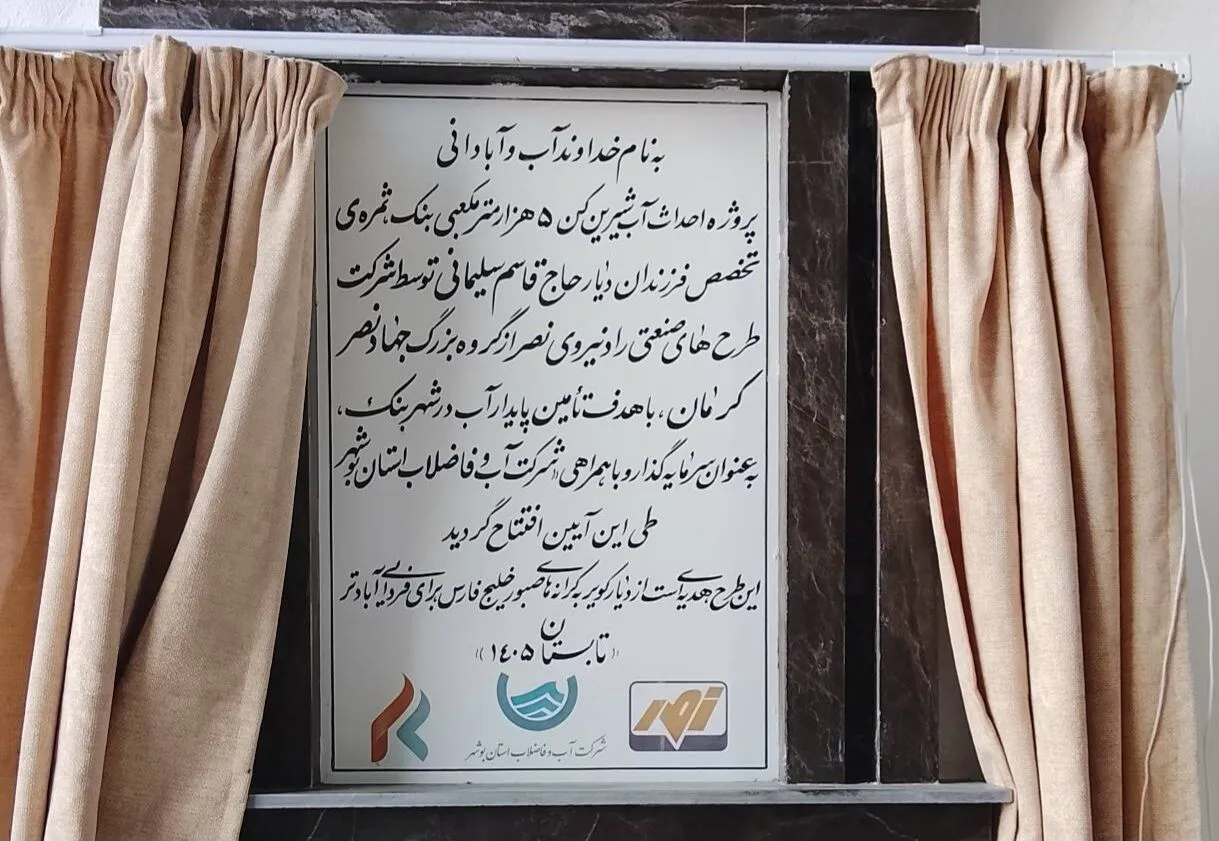 به نام خداوند آب و آبادانی
پروژه احداث آب شیرین کن ۵ هزار متر مکعبی بنک ثمره‌ی
تخصص فرزندان دیار حاج قاسم سلیمانی توسط شرکت
طرح های صنعتی راد نیروی نصر از گروه بزرگ جهاد نصر
کرمان، با هدف تأمین پایدار آب در شهر بنک،
به عنوان سرمایه گذار و با همراهی «شرکت آب و فاضلاب استان بوشهر
طی این آیین افتتاح گردید
این طرح هدیه‌ای است از دیار کویر به کرانه های صبور خلیج فارس برای فردایی آبادتر
«تابستان ۱۴۰۵»
شرکت آب و فاضلاب استان بوشهر